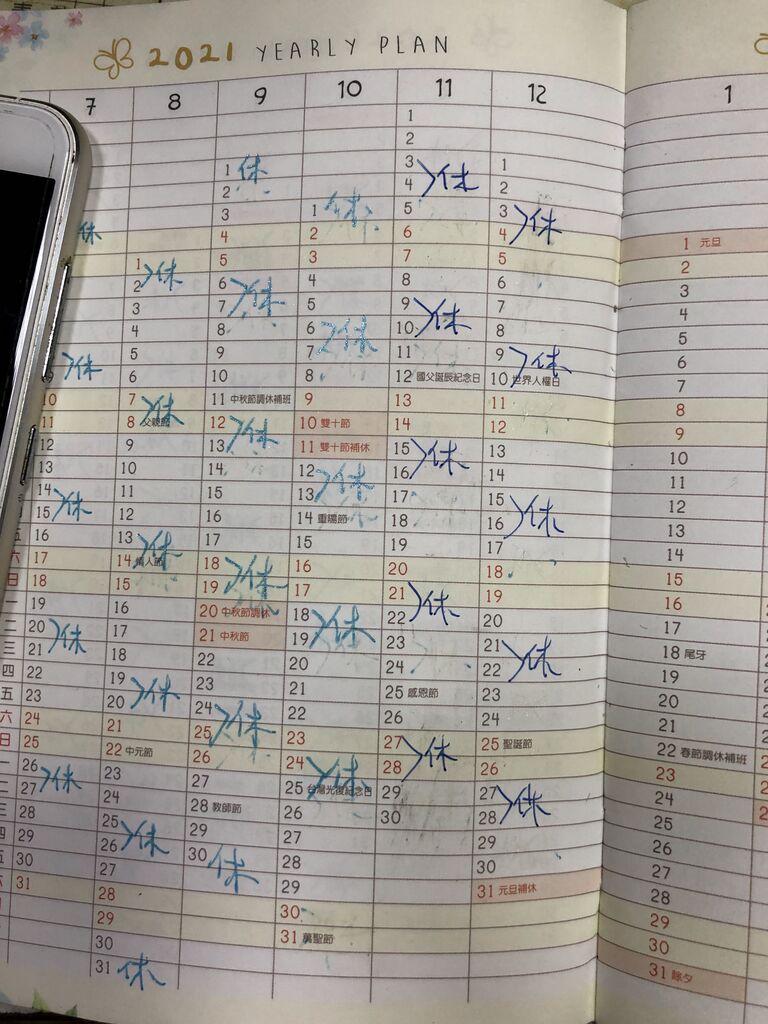 2021 YEARLY PLAN
7
休
休
10
11
12
13
14
15 休
16
17
18
19
20 休
21
22
23
24
25
26 休
27
28
29
30
31
8
1 休
2
3
4
5
6
7 休
8 父親節
9
10
11
12
13 休
14 情人節
15
16
17
18
19 休
20
21
22 中元節
23
24
25 休
26
27
28
29
30
31 休
9
1 休
2
3
4
5
6 休
7
8
9
10
11 中秋節調休補班
12 休
13
14
15
16
17
18 休
19
20 中秋節調休
21 中秋節
22
23
24 休
25
26
27
28 教師節
29
30 休
10
1 休
2
3
4
5
6 休
7
8
9
10 雙十節
11 雙十節補休
12 休
13
14 重陽節
15
16
17
18 休
19
20
21
22
23
24 休
25 台灣光復紀念日
26
27
28
29
30
31 萬聖節
11
1
2
3 休
4
5
6
7
8
9 休
10
11
12 國父誕辰紀念日
13
14
15 休
16
17
18
19
20
21 休
22
23
24
25 感恩節
26
27 休
28
29
30
12
1
2
3 休
4
5
6
7
8
9 休
10 世界人權日
11
12
13
14
15 休
16
17
18
19
20
21 休
22
23
24
25 聖誕節
26
27 休
28
29
30
31 元旦補休
1
1 元旦
2
3
4
5
6
7
8
9
10
11
12
13
14
15
16
17
18 尾牙
19
20
21
22 春節調休補班
23
24
25
26
27
28
29
30
31 除夕